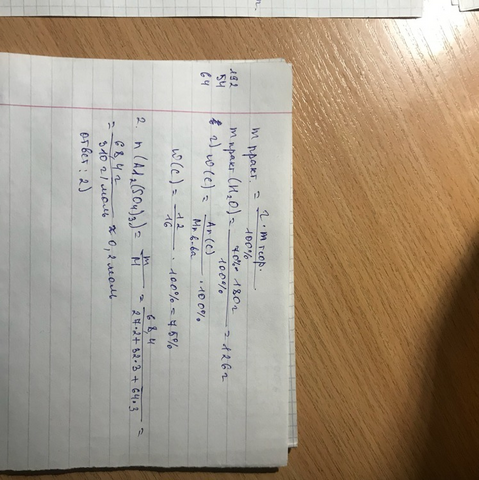 192
54
64
m практ. = η · m теор. / 100%
m практ (H₂O) = 70% · 180г / 100% = 126г
2) ω(C) = Ar(C) / Mr в-ва · 100%
ω(C) = 12 / 16 · 100% = 75%
2. n (Al₂(SO₄)₃) = m / M = 68,4 / 27·2+32·3+64·3 =
= 68,4 г / 310 г/моль ≈ 0,2 моль
ответ: 2)